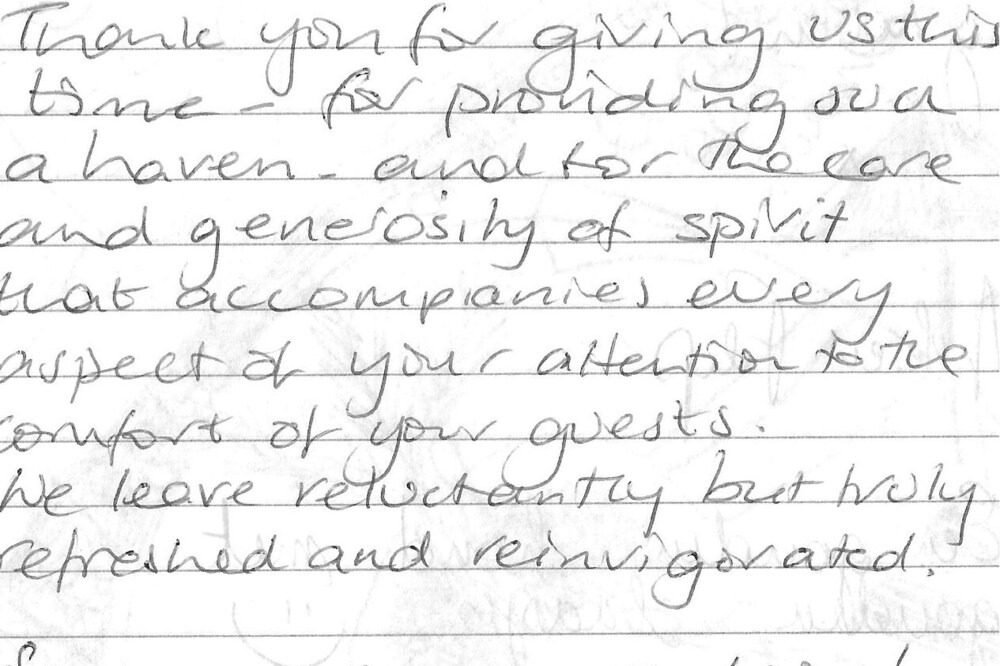 Thank you for giving us this
time - for providing such
a haven - and for the care
and generosity of spirit
that accompanies every
aspect of your attention to the
comfort of your guests.
We leave reluctantly but truly
refreshed and reinvigorated.